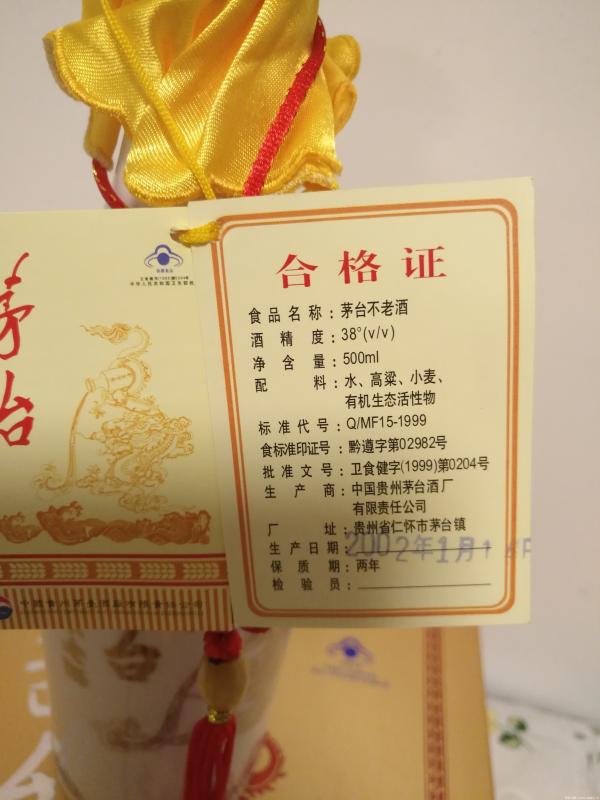 茅台
保健食品
中华人民共和国卫生部批
合格证
食品名称：茅台不老酒
酒精度：38°(v/v)
净含量：500ml
配料：水、高粱、小麦、
有机生态活性物
标准代号：Q/MF15-1999
食标准印证号：黔遵字第02982号
批准文号：卫食健字(1999)第0204号
生产商：中国贵州茅台酒厂
有限责任公司
厂址：贵州省仁怀市茅台镇
生产日期：2002年1月1
保质期：两年
检验员：
中国贵州茅台酒厂有限责任公司